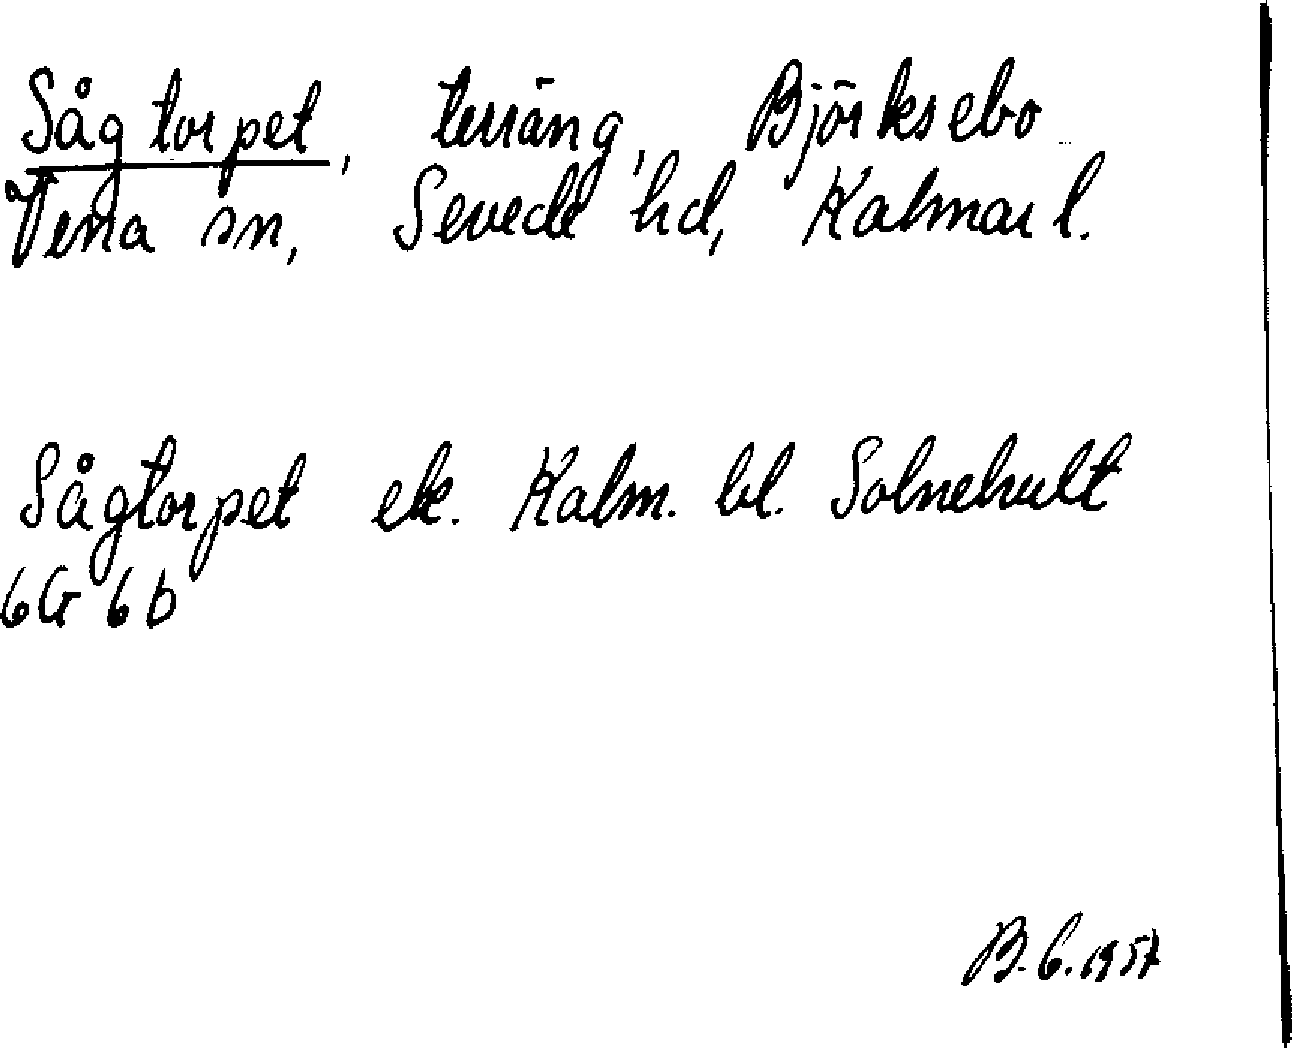 Sågtorpet, terräng, Björksebo
Vena sn, Sevede hd, Kalmar l.
Sågtorpet ek. Kalm. bl. Solnehult
6G 6b
B. G. 1957